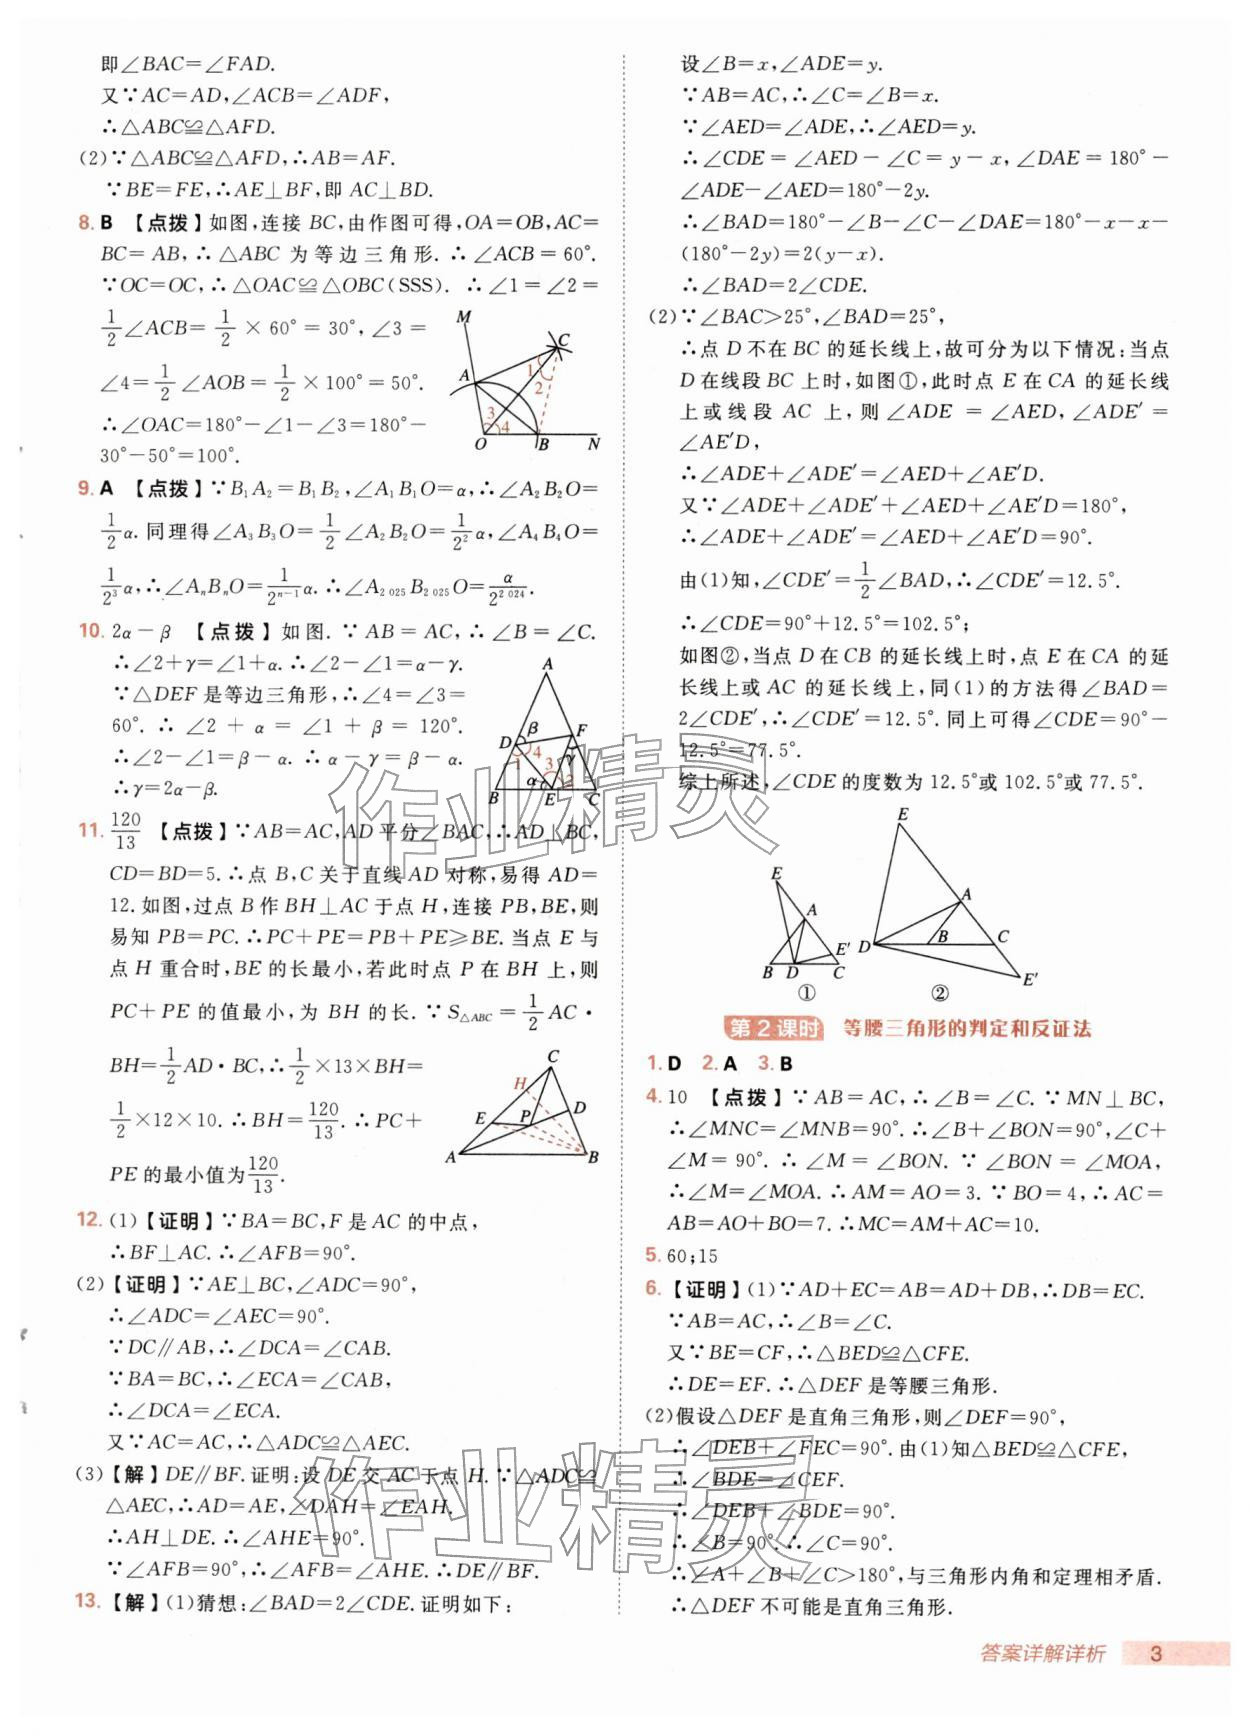 即∠BAC=∠FAD.
又∵AC=AD,∠ACB=∠ADF,
∴△ABC≌△AFD.
(2)∵△ABC≌△AFD,∴AB=AF.
∵BE=FE,∴AE⊥BF,即 AC⊥BD.
8. B 【点拨】如图,连接 BC,由作图可得,OA=OB,AC=
BC=AB,∴△ABC 为等边三角形.∴∠ACB=60°.
∵OC=OC,∴△OAC≌△OBC(SSS).∴∠1=∠2=
1/2∠ACB=1/2×60°=30°,∠3=
∠4=1/2∠AOB=1/2×100°=50°.
∴∠OAC=180°-∠1-∠3=180°-
30°-50°=100°.
M
C
A
1
2
3
4
O
B
N
9. A 【点拨】∵B₁A₂=B₁B₂,∠A₁B₁O=α,∴∠A₂B₂O=
1/2α.同理得∠A₃B₃O=1/2∠A₂B₂O=1/2²α,∠A₄B₄O=
1/2³α,∴∠AₙBₙO=1/2ⁿ⁻¹α.∴∠A₂ ₀₂₅B₂ ₀₂₅O=α/2² ⁰²⁴.
10. 2α-β 【点拨】如图.∵AB=AC,∴∠B=∠C.
∴∠2+γ=∠1+α.∴∠2-∠1=α-γ.
∵△DEF 是等边三角形,∴∠4=∠3=
60°.∴∠2+α=∠1+β=120°.
∴∠2-∠1=β-α.∴α-γ=β-α.
∴γ=2α-β.
A
D
β
F
4
1
3
γ
α
2
B
E
C
11. 120/13 【点拨】∵AB=AC,AD 平分∠BAC,∴AD⊥BC,
CD=BD=5.∴点 B,C 关于直线 AD 对称,易得 AD=
12.如图,过点 B 作 BH⊥AC 于点 H,连接 PB,BE,则
易知 PB=PC.∴PC+PE=PB+PE≥BE.当点 E 与
点 H 重合时,BE 的长最小,若此时点 P 在 BH 上,则
PC+PE 的值最小,为 BH 的长.∵S△ABC=1/2AC·
BH=1/2AD·BC,∴1/2×13×BH=
1/2×12×10.∴BH=120/13.∴PC+
PE 的最小值为120/13.
C
H
E
P
D
A
B
12. (1)【证明】∵BA=BC,F 是 AC 的中点,
∴BF⊥AC.∴∠AFB=90°.
(2)【证明】∵AE⊥BC,∠ADC=90°,
∴∠ADC=∠AEC=90°.
∵DC∥AB,∴∠DCA=∠CAB.
∵BA=BC,∴∠ECA=∠CAB,
∴∠DCA=∠ECA.
又∵AC=AC,∴△ADC≌△AEC.
(3)【解】DE∥BF.证明:设 DE 交 AC 于点 H.∵△ADC≌
△AEC,∴AD=AE,∠DAH=∠EAH.
∴AH⊥DE.∴∠AHE=90°.
∵∠AFB=90°,∴∠AFB=∠AHE.∴DE∥BF.
13.【解】(1)猜想:∠BAD=2∠CDE.证明如下:
设∠B=x,∠ADE=y.
∵AB=AC,∴∠C=∠B=x.
∵∠AED=∠ADE,∴∠AED=y.
∴∠CDE=∠AED-∠C=y-x,∠DAE=180°-
∠ADE-∠AED=180°-2y.
∴∠BAD=180°-∠B-∠C-∠DAE=180°-x-x-
(180°-2y)=2(y-x).
∴∠BAD=2∠CDE.
(2)∵∠BAC>25°,∠BAD=25°,
∴点 D 不在 BC 的延长线上,故可分为以下情况:当点
D 在线段 BC 上时,如图①,此时点 E 在 CA 的延长线
上或线段 AC 上,则∠ADE=∠AED,∠ADE′=
∠AE′D,
∴∠ADE+∠ADE′=∠AED+∠AE′D.
又∵∠ADE+∠ADE′+∠AED+∠AE′D=180°,
∴∠ADE+∠ADE′=∠AED+∠AE′D=90°.
由(1)知,∠CDE′=1/2∠BAD,∴∠CDE′=12.5°.
∴∠CDE=90°+12.5°=102.5°;
如图②,当点 D 在 CB 的延长线上时,点 E 在 CA 的延
长线上或 AC 的延长线上,同(1)的方法得∠BAD=
2∠CDE′,∴∠CDE′=12.5°.同上可得∠CDE=90°-
12.5°=77.5°.
综上所述,∠CDE 的度数为 12.5°或 102.5°或 77.5°.
E
A
E′
B
D
C
①
E
A
D
B
C
E′
②
第 2 课时 等腰三角形的判定和反证法
1. D 2. A 3. B
4. 10 【点拨】∵AB=AC,∴∠B=∠C.∵MN⊥BC,
∴∠MNC=∠MNB=90°.∴∠B+∠BON=90°,∠C+
∠M=90°.∴∠M=∠BON.∵∠BON=∠MOA,
∴∠M=∠MOA.∴AM=AO=3.∵BO=4,∴AC=
AB=AO+BO=7.∴MC=AM+AC=10.
5. 60;15
6.【证明】(1)∵AD+EC=AB=AD+DB,∴DB=EC.
∵AB=AC,∴∠B=∠C.
又∵BE=CF,∴△BED≌△CFE.
∴DE=EF.∴△DEF 是等腰三角形.
(2)假设△DEF 是直角三角形,则∠DEF=90°,
∴∠DEB+∠FEC=90°.由(1)知△BED≌△CFE,
∴∠BDE=∠CEF.
∴∠DEB+∠BDE=90°.
∴∠B=90°.∴∠C=90°.
∴∠A+∠B+∠C>180°,与三角形内角和定理相矛盾.
∴△DEF 不可能是直角三角形.
答案详解详析 3
作业精灵
作业精灵